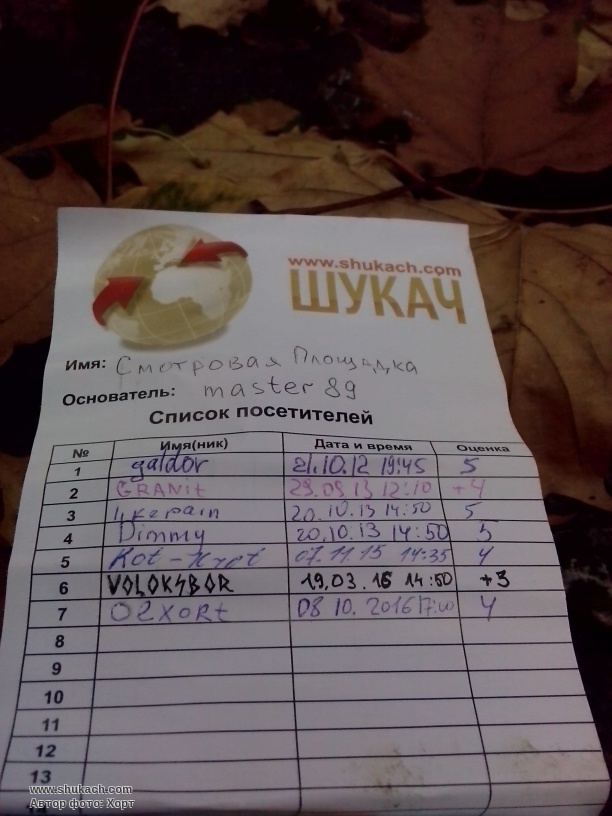 www.shukach.com
ШУКАЧ
Имя: Смотровая Площадка
Основатель: master 89
Список посетителей
№ Имя(ник) Дата и время Оценка
1 galdor 21.10.12 19:45 5
2 GRANit 12:10 +4
3 20.10.13 14:50 5
4 Dimmy 20.10.13 14:50
5 07.11.15 14:35 4
6 VOLOKSBOR 19.03.16 14:50 +3
7 O2XORt 08 10. 2016 4
8
9
10
11
12
13
www.shukach.com
Автор фото: Хорт